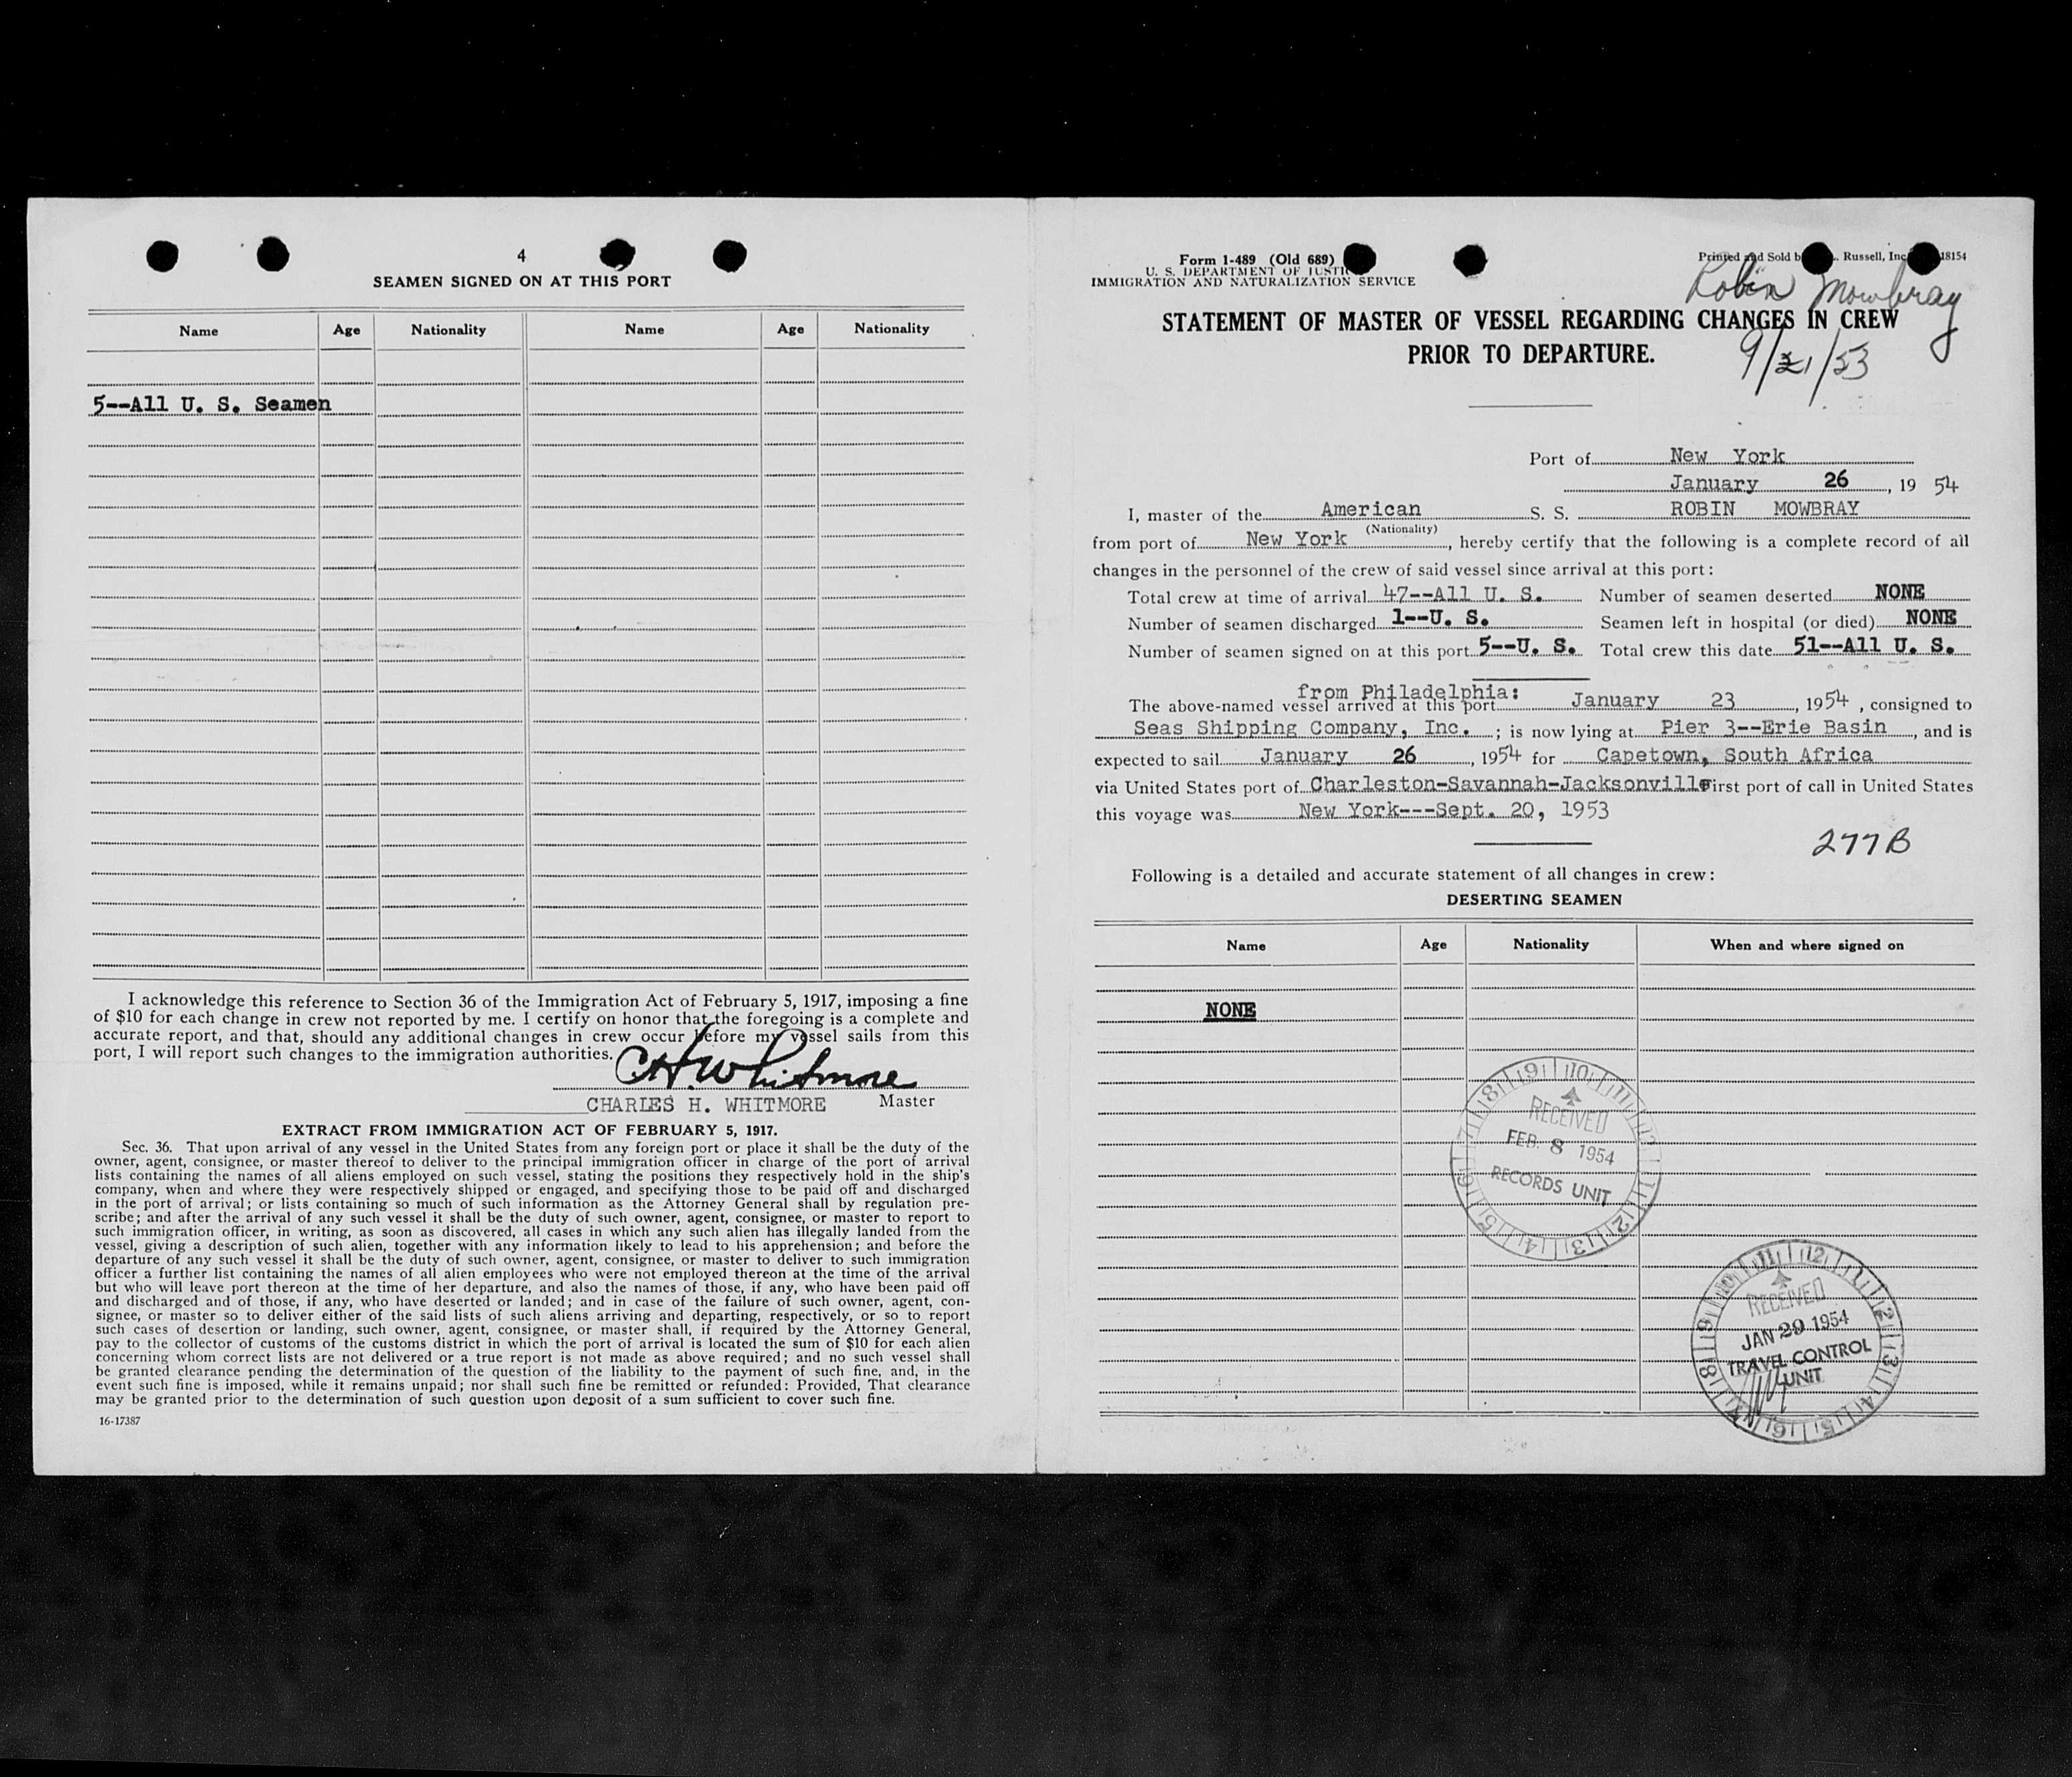 4
SEAMEN SIGNED ON AT THIS PORT
Name Age Nationality Name Age Nationality
5--All U. S. Seamen
I acknowledge this reference to Section 36 of the Immigration Act of February 5, 1917, imposing a fine
of $10 for each change in crew not reported by me. I certify on honor that the foregoing is a complete and
accurate report, and that, should any additional changes in crew occur before my vessel sails from this
port, I will report such changes to the immigration authorities.
C.H. Whitmore
CHARLES H. WHITMORE Master
EXTRACT FROM IMMIGRATION ACT OF FEBRUARY 5, 1917.
Sec. 36. That upon arrival of any vessel in the United States from any foreign port or place it shall be the duty of the
owner, agent, consignee, or master thereof to deliver to the principal immigration officer in charge of the port of arrival
lists containing the names of all aliens employed on such vessel, stating the positions they respectively hold in the ship's
company, when and where they were respectively shipped or engaged, and specifying those to be paid off and discharged
in the port of arrival; or lists containing so much of such information as the Attorney General shall by regulation pre-
scribe; and after the arrival of any such vessel it shall be the duty of such owner, agent, consignee, or master to report to
such immigration officer, in writing, as soon as discovered, all cases in which any such alien has illegally landed from the
vessel, giving a description of such alien, together with any information likely to lead to his apprehension; and before the
departure of any such vessel it shall be the duty of such owner, agent, consignee, or master to deliver to such immigration
officer a further list containing the names of all alien employees who were not employed thereon at the time of the arrival
but who will leave port thereon at the time of her departure, and also the names of those, if any, who have been paid off
and discharged and of those, if any, who have deserted or landed; and in case of the failure of such owner, agent, con-
signee, or master so to deliver either of the said lists of such aliens arriving and departing, respectively, or so to report
such cases of desertion or landing, such owner, agent, consignee, or master shall, if required by the Attorney General,
pay to the collector of customs of the customs district in which the port of arrival is located the sum of $10 for each alien
concerning whom correct lists are not delivered or a true report is not made as above required; and no such vessel shall
be granted clearance pending the determination of the question of the liability to the payment of such fine, and, in the
event such fine is imposed, while it remains unpaid; nor shall such fine be remitted or refunded: Provided, That clearance
may be granted prior to the determination of such question upon deposit of a sum sufficient to cover such fine.
16-17387
Form 1-489 (Old 689)
U. S. DEPARTMENT OF JUSTI
IMMIGRATION AND NATURALIZATION SERVICE
Printed and Sold b . Russell, Inc 18154
Robin Mowbray
STATEMENT OF MASTER OF VESSEL REGARDING CHANGES IN CREW
PRIOR TO DEPARTURE.
9/21/53
Port of New York
January 26, 19 54
I, master of the American S. S. ROBIN MOWBRAY
(Nationality)
from port of New York, hereby certify that the following is a complete record of all
changes in the personnel of the crew of said vessel since arrival at this port:
Total crew at time of arrival 47--All U. S. Number of seamen deserted NONE
Number of seamen discharged 1--U. S. Seamen left in hospital (or died) NONE
Number of seamen signed on at this port 5--U. S. Total crew this date 51--All U. S.
from Philadelphia:
The above-named vessel arrived at this port January 23, 1954, consigned to
Seas Shipping Company, Inc.; is now lying at Pier 3--Erie Basin, and is
expected to sail January 26, 1954 for Capetown, South Africa
via United States port of Charleston-Savannah-Jacksonville First port of call in United States
this voyage was New York---Sept. 20, 1953
277B
Following is a detailed and accurate statement of all changes in crew:
DESERTING SEAMEN
Name Age Nationality When and where signed on
NONE
RECEIVED
FEB 8 1954
RECORDS UNIT
RECEIVED
JAN 29 1954
TRAVEL CONTROL
UNIT